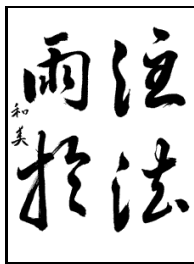 注法
雨於
和美